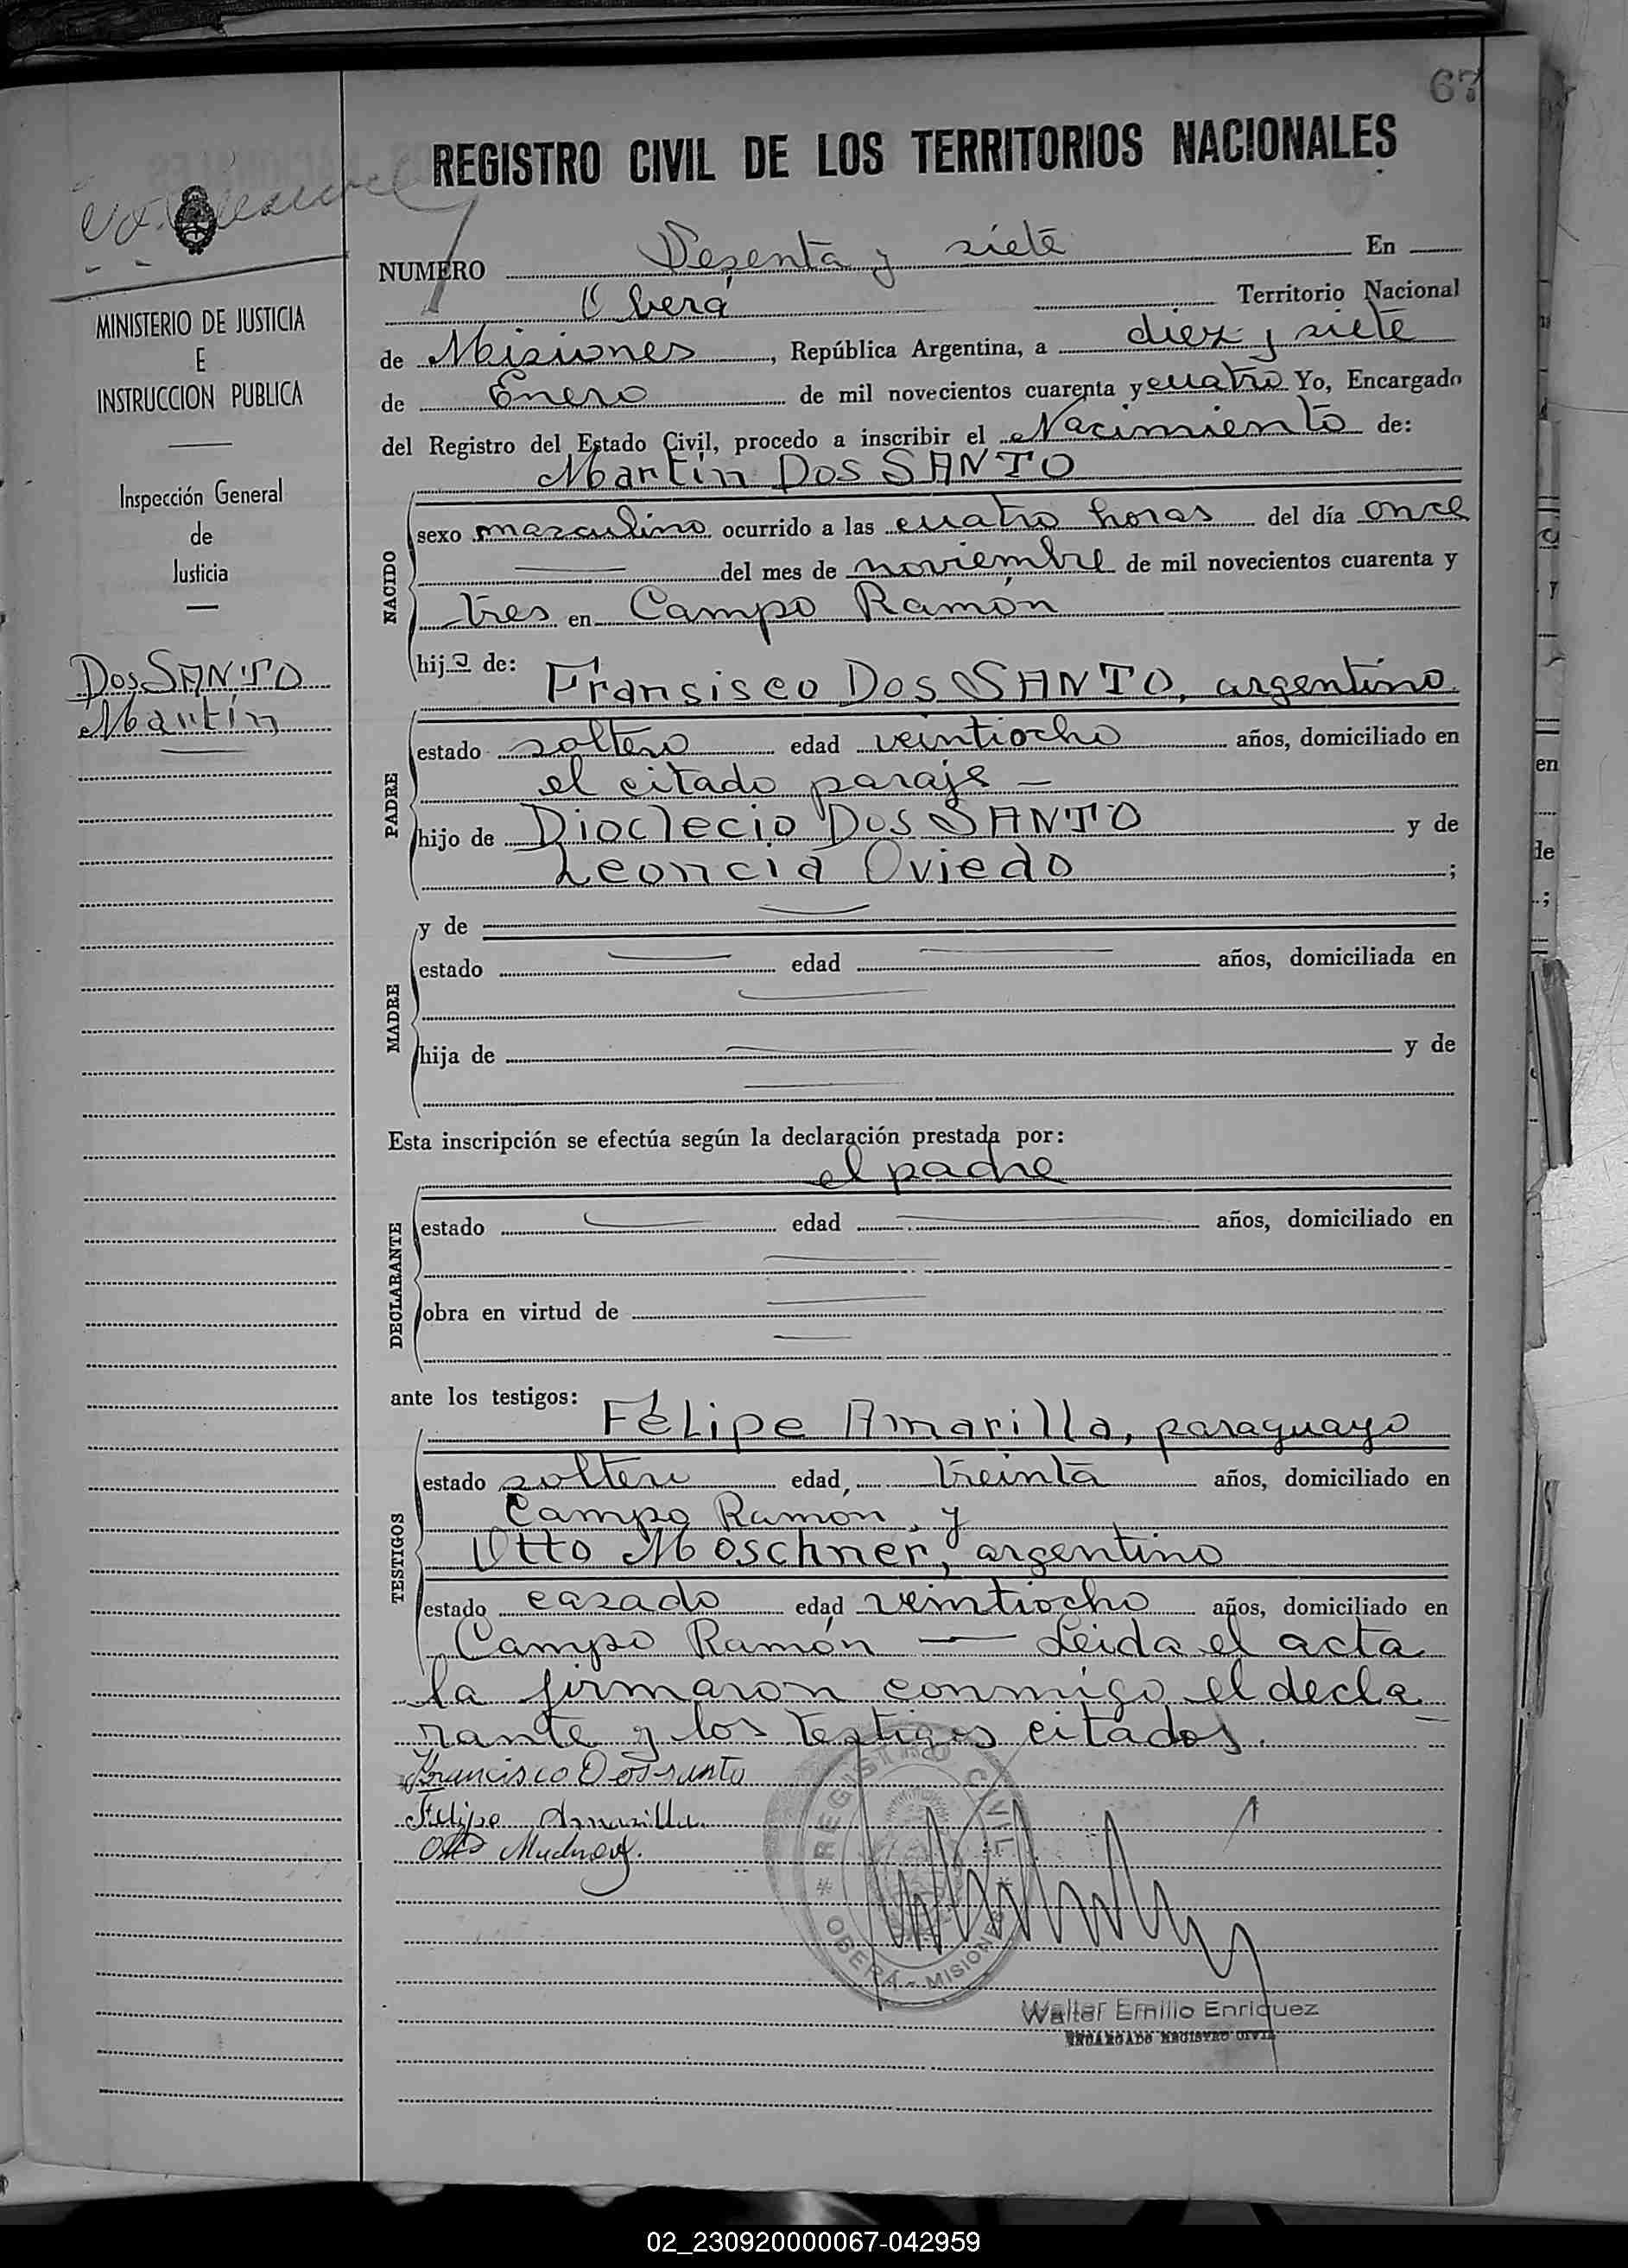 67
REGISTRO CIVIL DE LOS TERRITORIOS NACIONALES
MINISTERIO DE JUSTICIA
E
INSTRUCCION PUBLICA
Inspección General
de
Justicia
Dos SANTO
Martín
NUMERO Sesenta y siete En
Oberá Territorio Nacional
de Misiones, República Argentina, a diez y siete
de Enero de mil novecientos cuarenta y cuatro Yo, Encargado
del Registro del Estado Civil, procedo a inscribir el Nacimiento de:
Martín Dos SANTO
NACIDO
sexo masculino ocurrido a las cuatro horas del día once
del mes de noviembre de mil novecientos cuarenta y
tres en Campo Ramón
hijo de: Fransisco Dos SANTO, argentino
PADRE
estado soltero edad veintiocho años, domiciliado en
el citado paraje —
hijo de Dioclecio Dos SANTO y de
Leoncia Oviedo ;
y de
MADRE
estado edad años, domiciliada en
hija de y de
Esta inscripción se efectúa según la declaración prestada por:
el padre
DECLARANTE
estado edad años, domiciliado en
obra en virtud de
ante los testigos: Felipe Amarilla, paraguayo
TESTIGOS
estado soltero edad, treinta años, domiciliado en
Campo Ramon, y
Otto Moschner, argentino
estado casado edad veintiocho años, domiciliado en
Campo Ramón — Leida el acta
la firmaron conmigo el decla
rante y los testigos citados.
Francisco Dos santo
Felipe Amarilla
Otto
REGISTRO CIVIL
OBERÁ - MISIONES
Walter Emilio Enriquez
ENCARGADO REGISTRO CIVIL
02_230920000067-042959